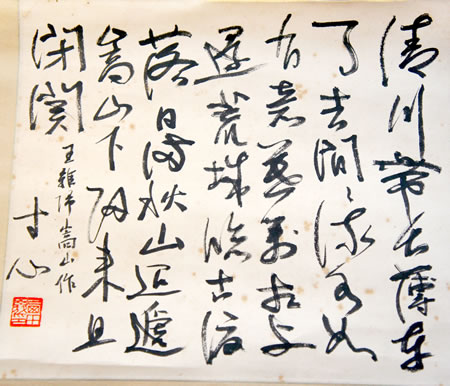 清川帶長薄車
馬去閒〻流水如
有意暮禽相與
還荒城臨古渡
落日滿秋山迢遞
嵩山下歸來且
閉関
王維歸嵩山作
寸心